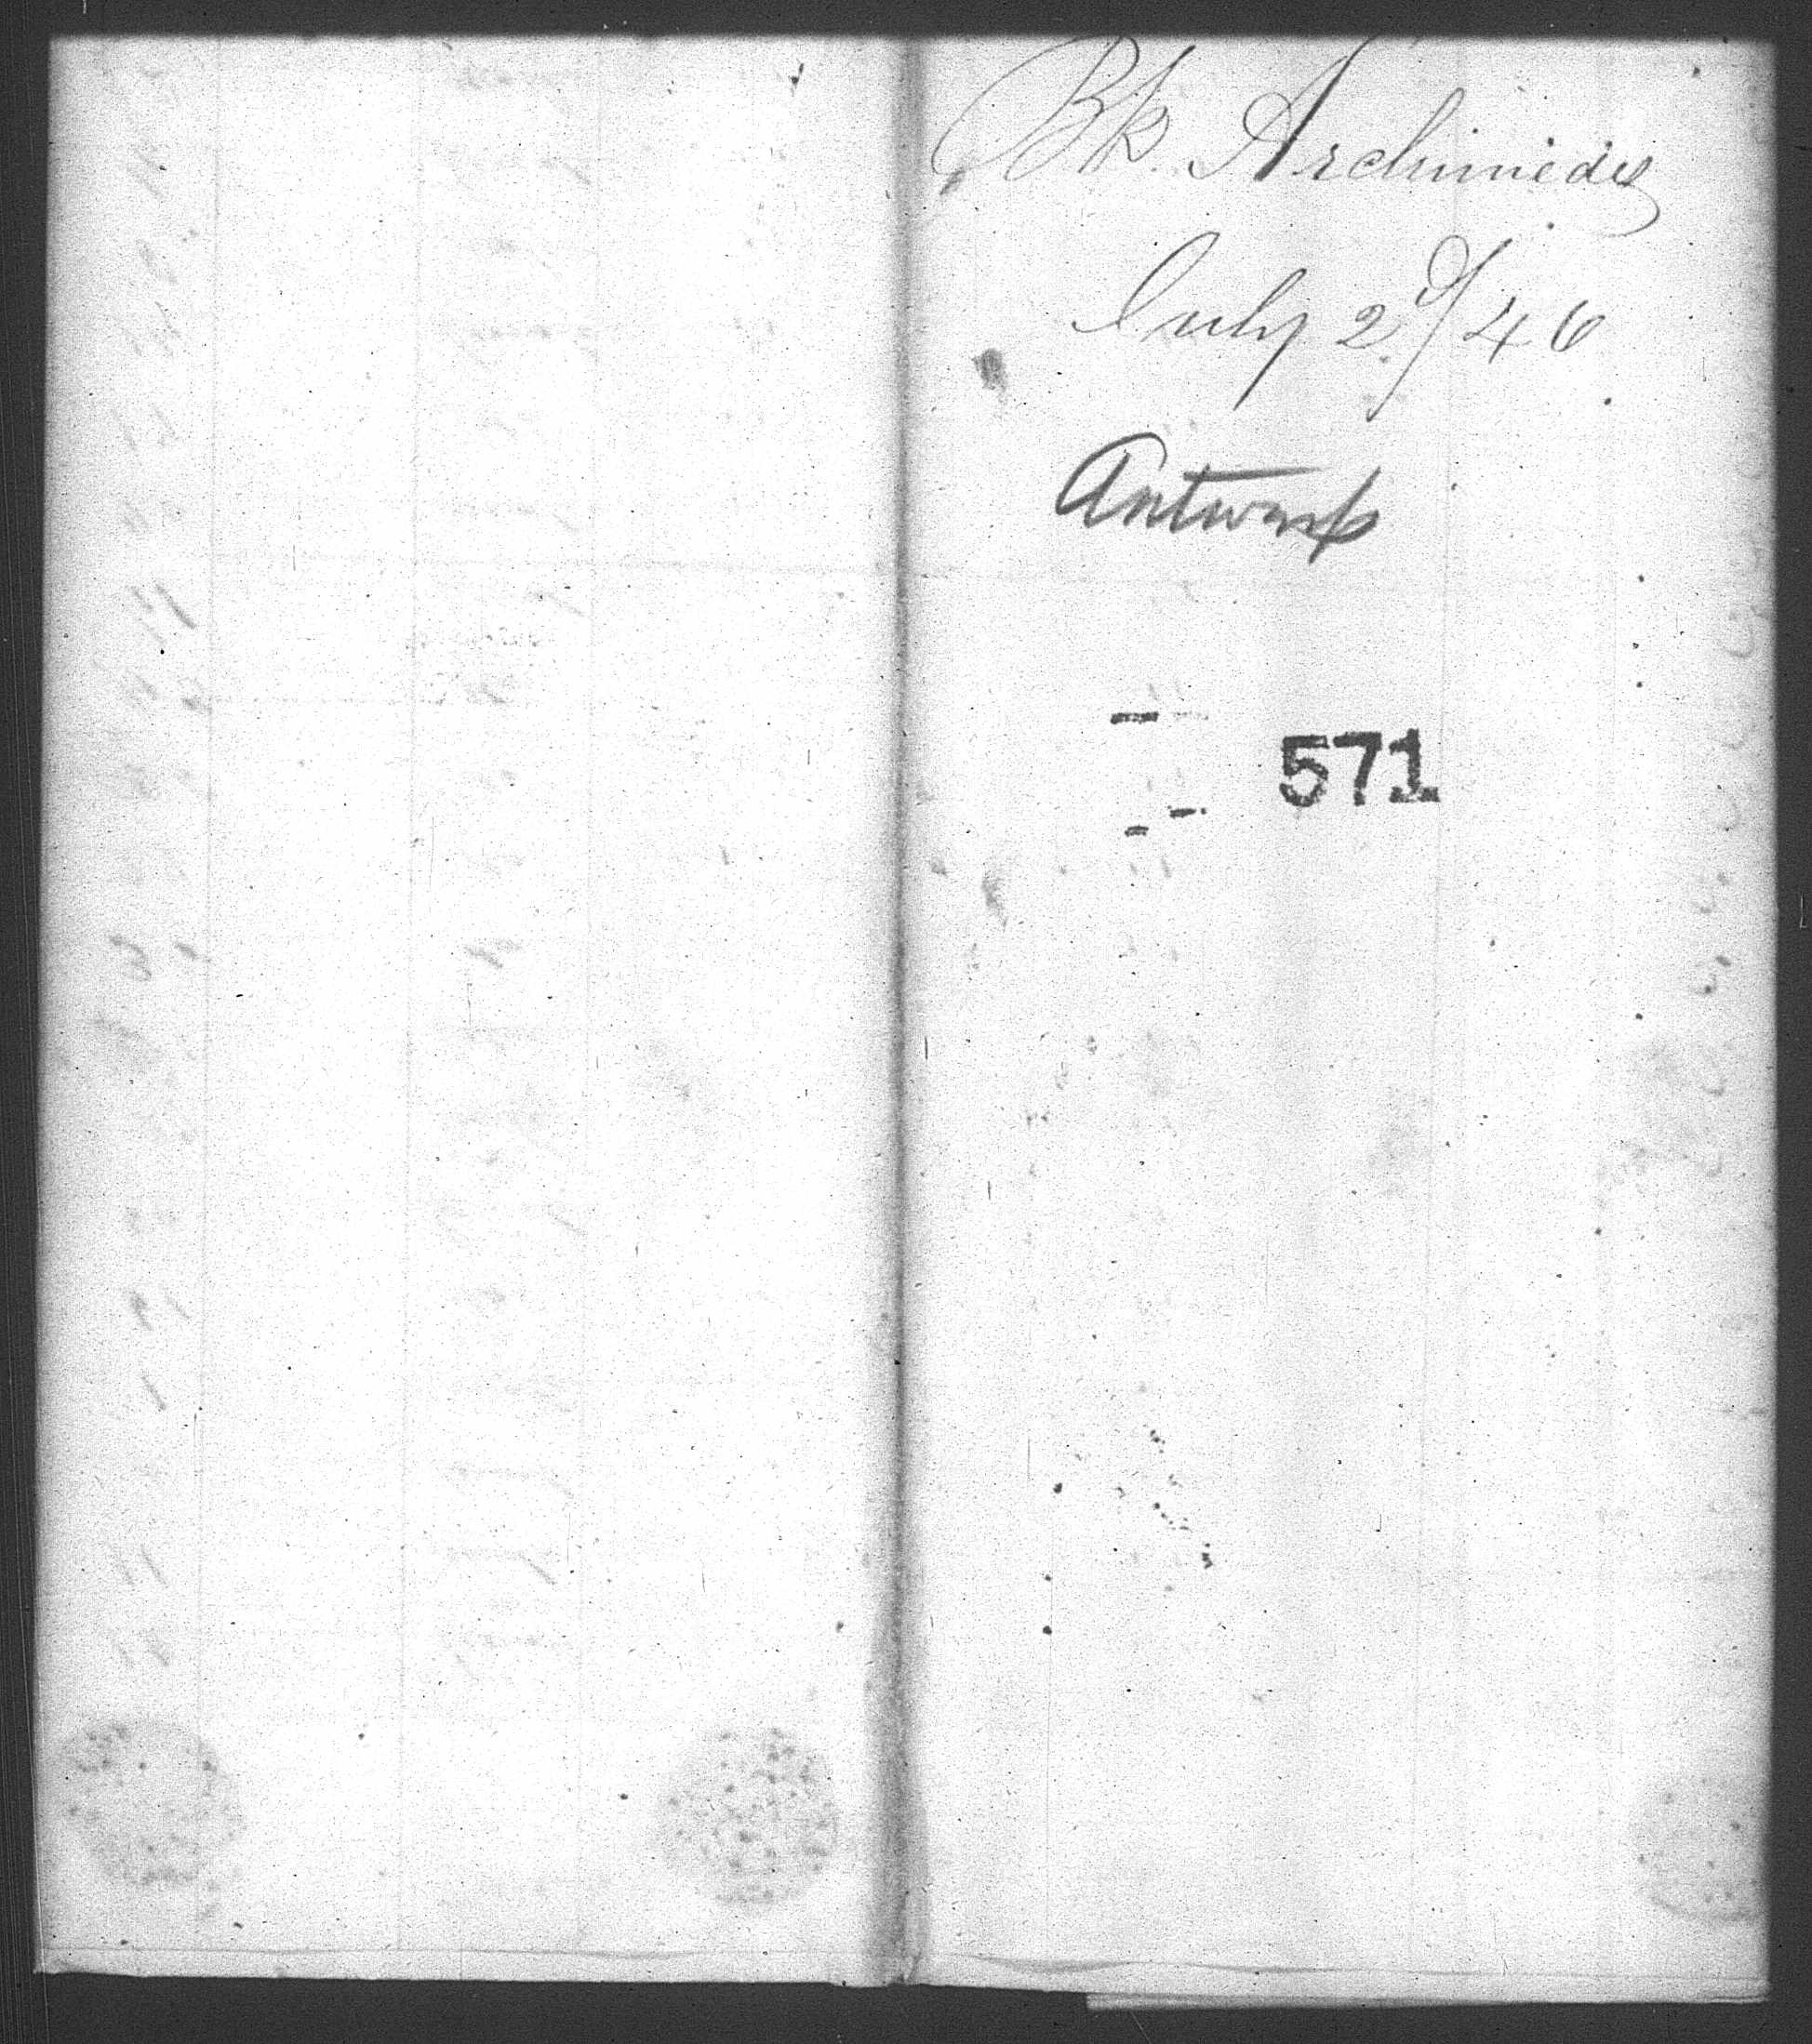 Bk. Archimedes
July 2d/46
Antwerp
571